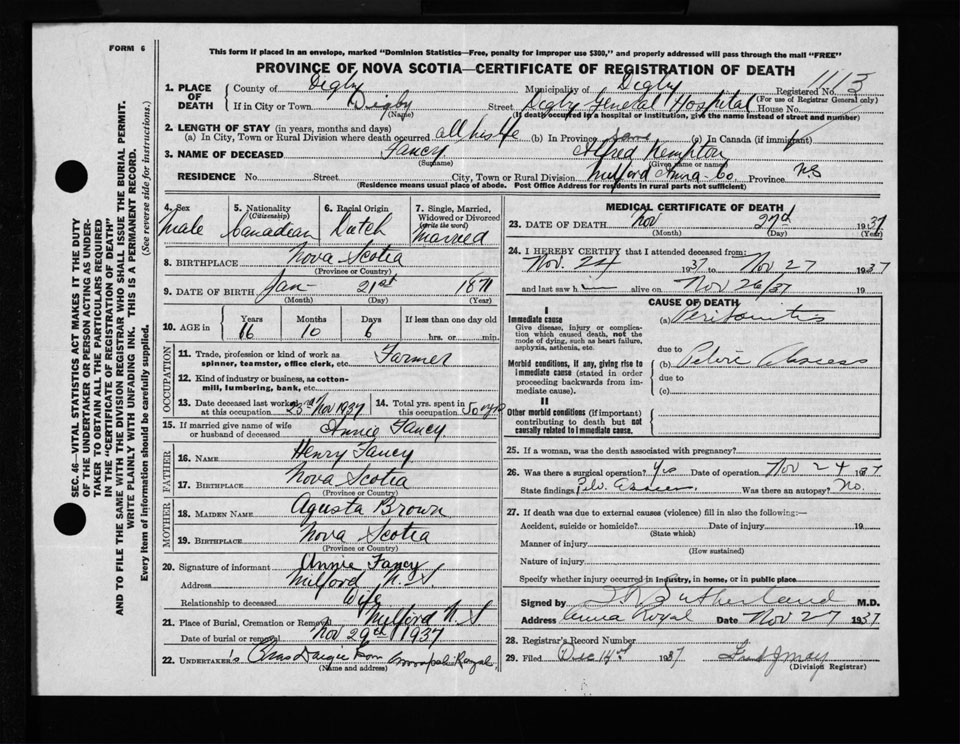 FORM 6
This form if placed in an envelope, marked "Dominion Statistics—Free, penalty for improper use $300," and properly addressed will pass through the mail "FREE"
PROVINCE OF NOVA SCOTIA—CERTIFICATE OF REGISTRATION OF DEATH
1. PLACE OF DEATH County of Digby Municipality of Digby Registered No. 1113
(For use of Registrar General only)
If in City or Town Digby Street Digby General Hospital House No.
(Name) (If death occurred in a hospital or institution, give the name instead of street and number)
2. LENGTH OF STAY (in years, months and days)
(a) In City, Town or Rural Division where death occurred all his life (b) In Province (c) In Canada (if immigrant)
3. NAME OF DECEASED Fancy Alfred Kempton
(Surname) (Given name or names)
RESIDENCE No. Street City, Town or Rural Division Milford Anna. Co. Province NS
(Residence means usual place of abode. Post Office Address for residents in rural parts not sufficient)
4. Sex Male
5. Nationality (Citizenship) Canadian
6. Racial Origin Dutch
7. Single, Married, Widowed or Divorced (write the word) Married
8. BIRTHPLACE Nova Scotia
(Province or Country)
9. DATE OF BIRTH Jan 21st 1871
(Month) (Day) (Year)
10. AGE in Years Months Days If less than one day old
66 10 6 hrs. or min.
OCCUPATION
11. Trade, profession or kind of work as spinner, teamster, office clerk, etc. Farmer
12. Kind of industry or business, as cotton-mill, lumbering, bank, etc.
13. Date deceased last worked at this occupation 23rd Nov 1937
14. Total yrs. spent in this occupation 50 yrs
15. If married give name of wife or husband of deceased Annie Fancy
FATHER
16. NAME Henry Fancy
17. BIRTHPLACE Nova Scotia
(Province or Country)
MOTHER
18. MAIDEN NAME Agusta Brown
19. BIRTHPLACE Nova Scotia
(Province or Country)
20. Signature of informant Annie Fancy
Address Milford N. S.
Relationship to deceased Wife
21. Place of Burial, Cremation or Removal Milford N. S.
Date of burial or removal Nov 29th 1937
22. UNDERTAKER's Annapolis Royal
(Name and address)
MEDICAL CERTIFICATE OF DEATH
23. DATE OF DEATH Nov 27th 1937
(Month) (Day) (Year)
24. I HEREBY CERTIFY that I attended deceased from:
Nov. 24 1937 to Nov 27 1937
and last saw him alive on Nov 26/37 19
CAUSE OF DEATH
I
Immediate cause (a) Peritonitis
Give disease, injury or complication which caused death, not the mode of dying, such as heart failure, asphyxia, asthenia, etc.
due to
Morbid conditions, if any, giving rise to immediate cause (stated in order proceeding backwards from immediate cause). (b) Pelvic Abscess
due to
(c)
II
Other morbid conditions (if important) contributing to death but not causally related to immediate cause.
25. If a woman, was the death associated with pregnancy?
26. Was there a surgical operation? Yes Date of operation Nov 24 1937
State findings Pelv. Abscess Was there an autopsy? No.
27. If death was due to external causes (violence) fill in also the following:—
Accident, suicide or homicide? Date of injury 19
(State which)
Manner of injury
(How sustained)
Nature of injury
Specify whether injury occurred in industry, in home, or in public place
Signed by Sutherland M.D.
Address Anna Royal Date Nov 27 1937
28. Registrar's Record Number
29. Filed Dec 14th 1937
(Division Registrar)
SEC. 46—VITAL STATISTICS ACT MAKES IT THE DUTY
OF THE UNDERTAKER OR PERSON ACTING AS UNDER-
TAKER TO OBTAIN ALL THE PARTICULARS REQUIRED
IN THE "CERTIFICATE OF REGISTRATION OF DEATH"
AND TO FILE THE SAME WITH THE DIVISION REGISTRAR WHO SHALL ISSUE THE BURIAL PERMIT.
WRITE PLAINLY WITH UNFADING INK. THIS IS A PERMANENT RECORD.
Every item of information should be carefully supplied. (See reverse side for instructions.)